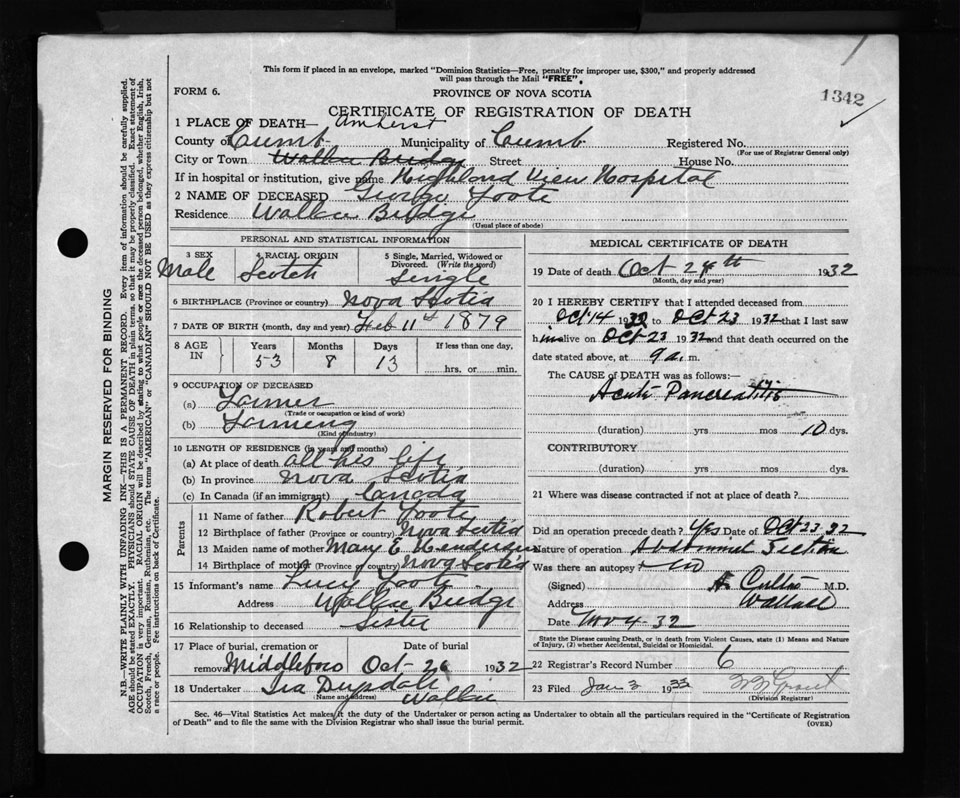 This form if placed in an envelope, marked "Dominion Statistics—Free, penalty for improper use, $300," and properly addressed
will pass through the Mail "FREE".
FORM 6.
PROVINCE OF NOVA SCOTIA
1342
CERTIFICATE OF REGISTRATION OF DEATH
1 PLACE OF DEATH— Amherst
County of Cumb. Municipality of Cumb Registered No.
(For use of Registrar General only)
City or Town Wallace Bridge Street House No.
If in hospital or institution, give name Highland View Hospital
2 NAME OF DECEASED George Foote
Residence Wallace Bridge
(Usual place of abode)
PERSONAL AND STATISTICAL INFORMATION
3 SEX 4 RACIAL ORIGIN 5 Single, Married, Widowed or
Divorced. (Write the word)
Male Scotch Single
6 BIRTHPLACE (Province or country) Nova Scotia
7 DATE OF BIRTH (month, day and year) Feb 11th 1879
8 AGE IN Years Months Days If less than one day,
53 8 13 hrs. or min.
9 OCCUPATION OF DECEASED
(a) Farmer
(Trade or occupation or kind of work)
(b) Farming
(Kind of industry)
10 LENGTH OF RESIDENCE (in years and months)
(a) At place of death all his life
(b) In province Nova Scotia
(c) In Canada (if an immigrant) Canada
Parents
11 Name of father Robert Foote
12 Birthplace of father (Province or country) Nova Scotia
13 Maiden name of mother Mary E Henderson
14 Birthplace of mother (Province or country) Nova Scotia
15 Informant's name Lucy Foote
Address Wallace Bridge
16 Relationship to deceased Sister
17 Place of burial, cremation or Date of burial
removal Middleboro Oct-26 1932
18 Undertaker Ira Drysdale
Name and address Wallace
MEDICAL CERTIFICATE OF DEATH
19 Date of death Oct 24th 1932
(Month, day and year)
20 I HEREBY CERTIFY that I attended deceased from
Oct 14 1932 to Oct 23 1932 that I last saw
him alive on Oct 23 1932 and that death occurred on the
date stated above, at 9 a. m.
The CAUSE of DEATH was as follows:—
Acute Pancreatitis
(duration) yrs mos 10 dys.
CONTRIBUTORY
(duration) yrs mos dys.
21 Where was disease contracted if not at place of death?
Did an operation precede death? Yes Date of Oct 23 32
Nature of operation Abdominal Section
Was there an autopsy? no
(Signed) M.D.
Address Wallace
Date Nov 4-32
State the Disease causing Death, or in death from Violent Causes, state (1) Means and Nature
of Injury, (2) whether Accidental, Suicidal or Homicidal.
22 Registrar's Record Number 6
23 Filed Jan 3 1933 Grant
(Division Registrar)
Sec. 46—Vital Statistics Act makes it the duty of the Undertaker or person acting as Undertaker to obtain all the particulars required in the "Certificate of Registration
of Death" and to file the same with the Division Registrar who shall issue the burial permit.
(OVER)
MARGIN RESERVED FOR BINDING
N.B.—WRITE PLAINLY WITH UNFADING INK—THIS IS A PERMANENT RECORD. Every item of information should be carefully supplied.
AGE should be stated EXACTLY. PHYSICIANS should STATE CAUSE OF DEATH in plain terms, so that it may be properly classified. Exact statement of
OCCUPATION is very important. RACIAL ORIGIN will be described by stating to what people or race the deceased person belonged, whether English, Irish,
Scotch, French, German, Russian, Ruthenian, etc. The terms "AMERICAN" or "CANADIAN" SHOULD NOT BE USED as they express citizenship but not
a race or people. For instructions on back of Certificate.